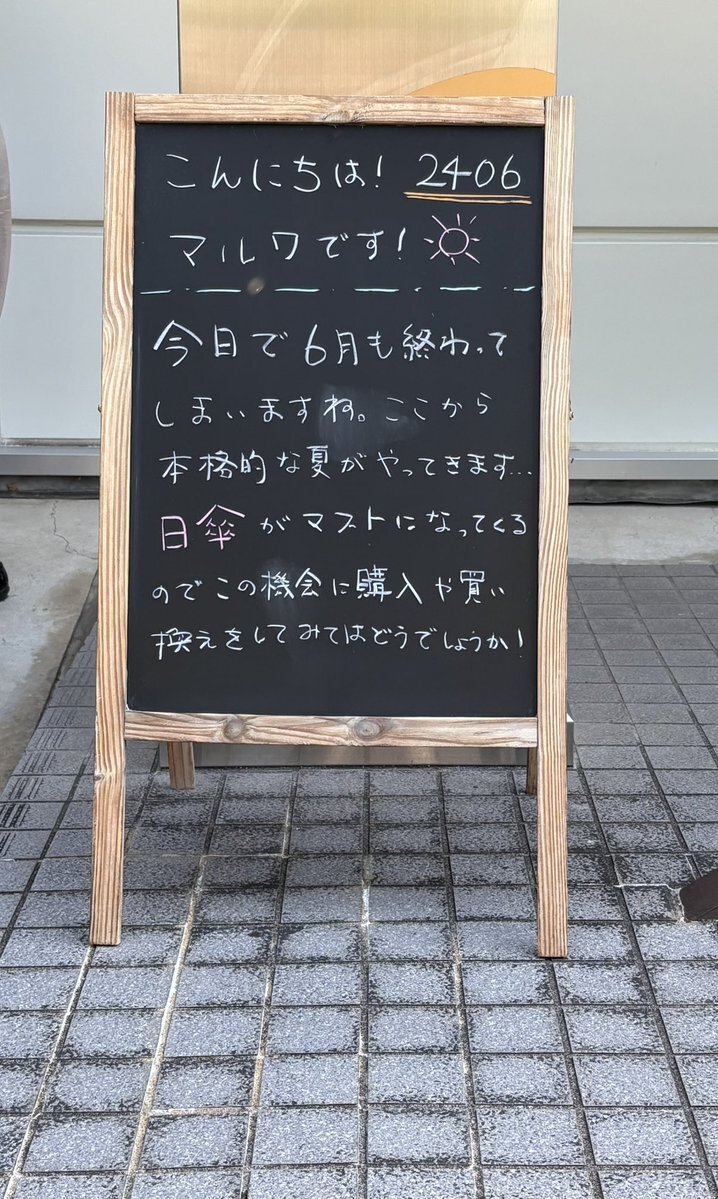 こんにちは! 2406
マルワです!
今日で6月も終わって
しまいますね。ここから
本格的な夏がやってきます...
日傘がマストになってくる
のでこの機会に購入や買い
換えをしてみてはどうでしょうか!